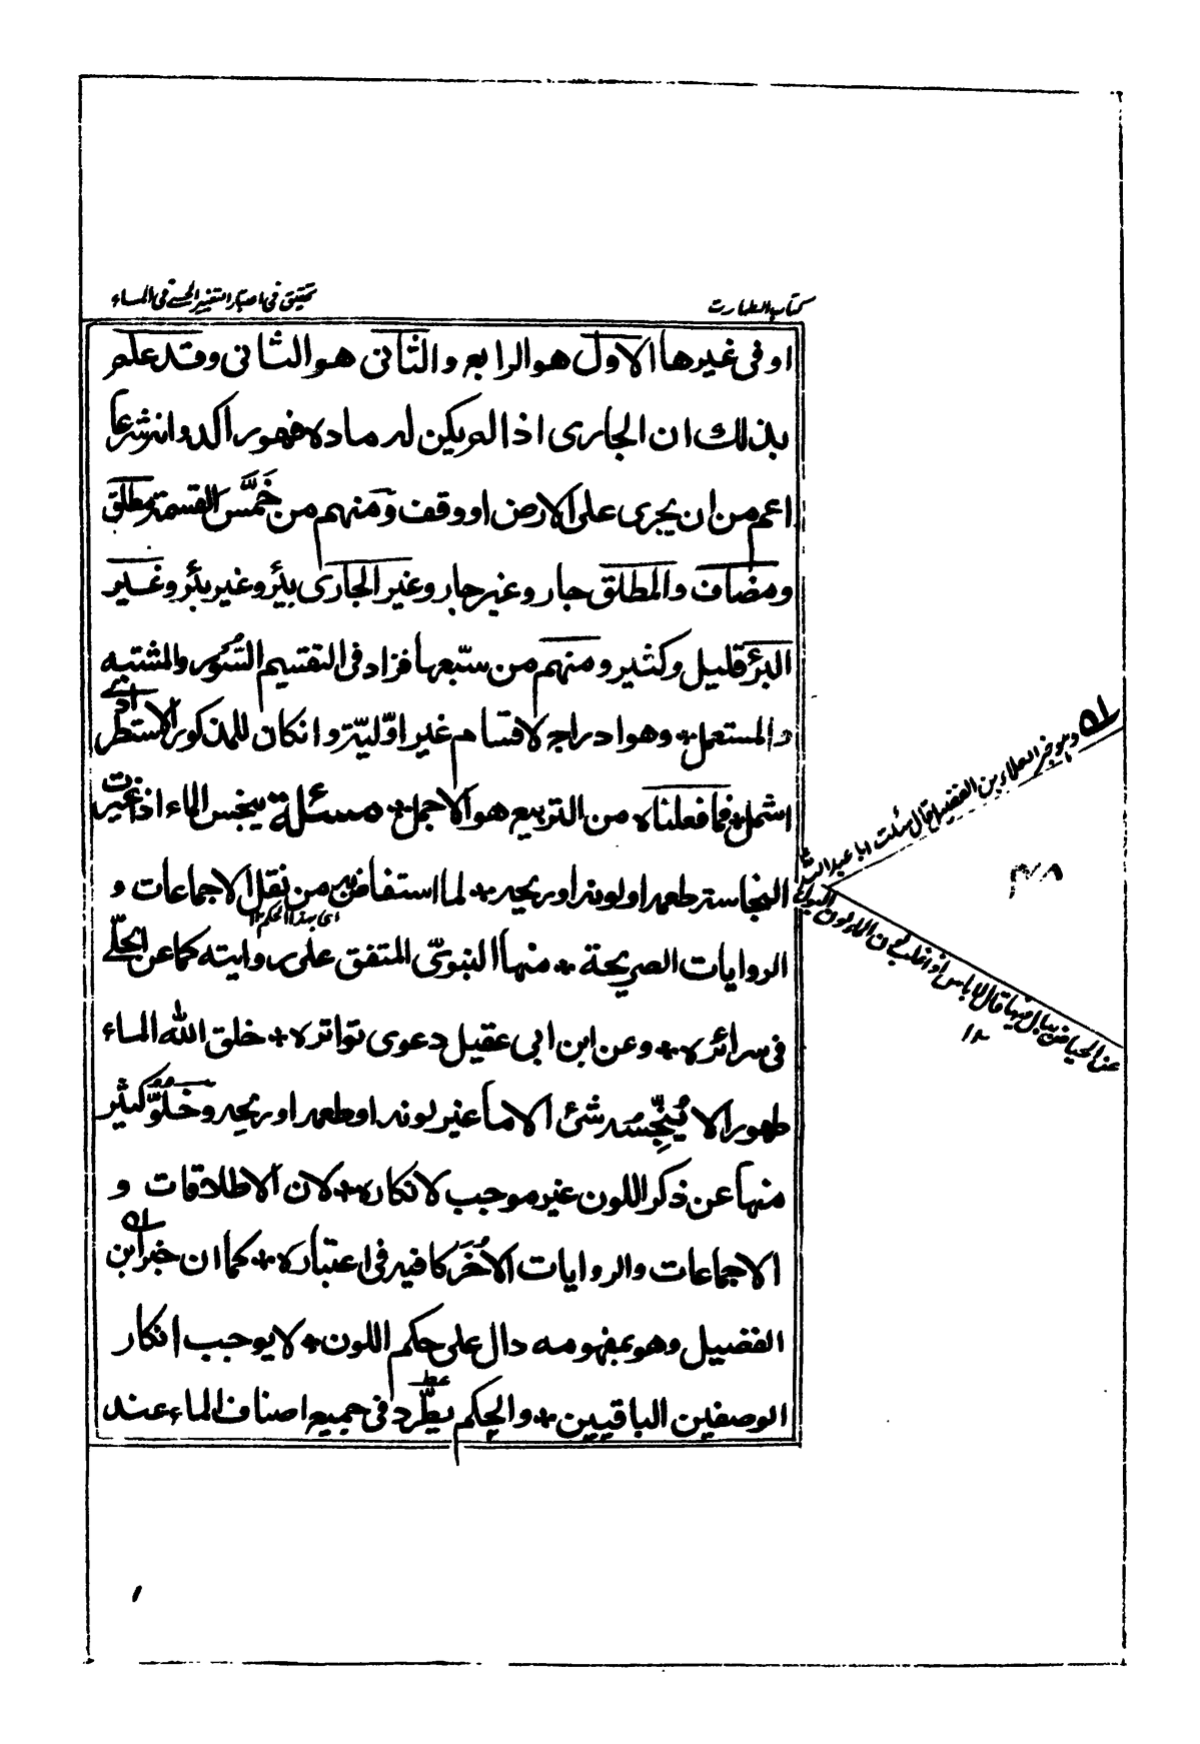 كتاب الطهارت
تحقيق فى اعتبار التغير الحسى فى الماء
او فى غيرها الاول هو الرابع والثانى هو الثانى وقد علم
بذلك ان الجارى اذا لم يكن له مادة فهو راكد وانه شرعا
اعم من ان يجرى على الارض او وقف ومنهم من خمَّس القسمة بمطلق
ومضاف والمطلق جار وغير جار وغير الجارى بئر وغير بئر وغير
البئر قليل وكثير ومنهم من سبّعها فزاد فى التقسيم السُّور والمشتبه
والمستعمل وهو ادراج لاقسام غير اوّليّة وان كان للمذكور الاستطرادى
اشمل فما فعلناه من التربيع هو الاجمل مسئلة ينجس الماء اذا غيرت
النجاسة طعمه او لونه او ريحه لما استفاض من نقل الاجماعات و
اى بهذا الحكم ١٢
الروايات الصريحة منها النبوىّ المتفق على روايته كما عن الحلّى
فى سرائره وعن ابن ابى عقيل دعوى تواتره خلق الله الماء
طهورا لا يُنجِّسُه شئ الا ما غير لونه او طعمه او ريحه وخلوّ كثير
منها عن ذكر اللون غير موجب لانكاره لان الاطلاقات و
الاجماعات والروايات الاُخَر كافيه فى اعتباره كما ان خبر ابن
الفضيل وهو بمفهومه دال على حكم اللون لا يوجب انكار
الوصفين الباقيين والحكم يطّرد فى جميع اصناف الماء عند
له وهو خبر العلاء بن الفضيل قال سئلت ابا عبد الله
عن الحياض يبال فيها قال لا باس اذا غلب لون الماء لون البول
١٢